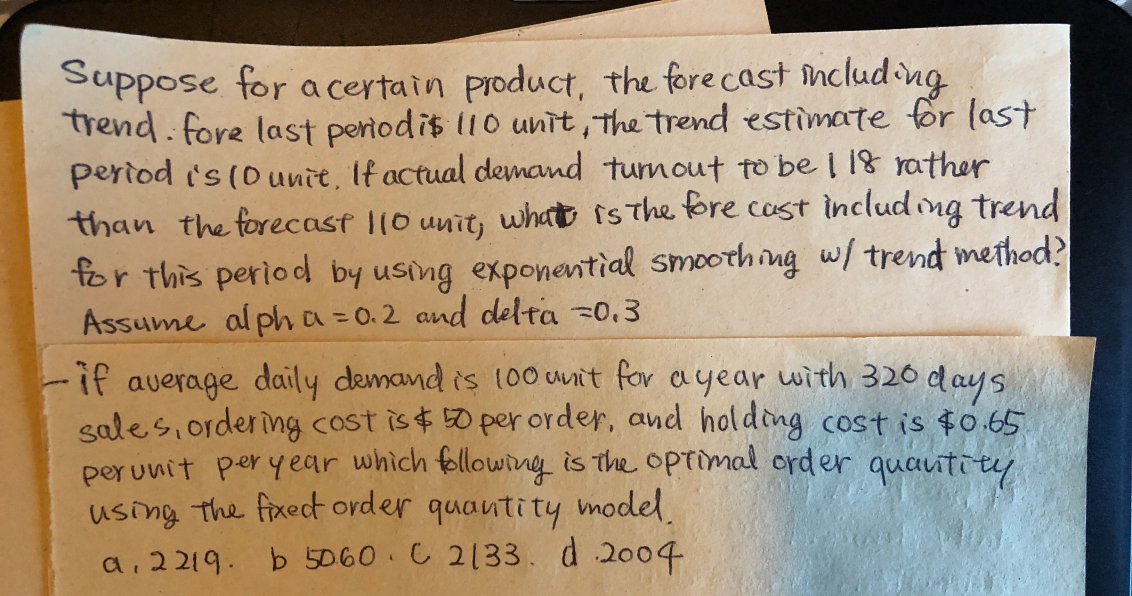 Suppose for a certain product, the forecast including
trend. fore last period is 110 unit, the trend estimate for last
period is 10 unit. If actual demand turnout to be 118 rather
than the forecast 110 unit, what is the fore cast including trend
for this period by using exponential smoothing w/ trend method?
Assume alpha = 0.2 and delta = 0.3
- if average daily demand is 100 unit for a year with 320 days
sales, ordering cost is $ 50 per order, and holding cost is $0.65
per unit per year which following is the optimal order quantity
using the fixed order quantity model.
a. 2219. b 5060. C 2133. d. 2004